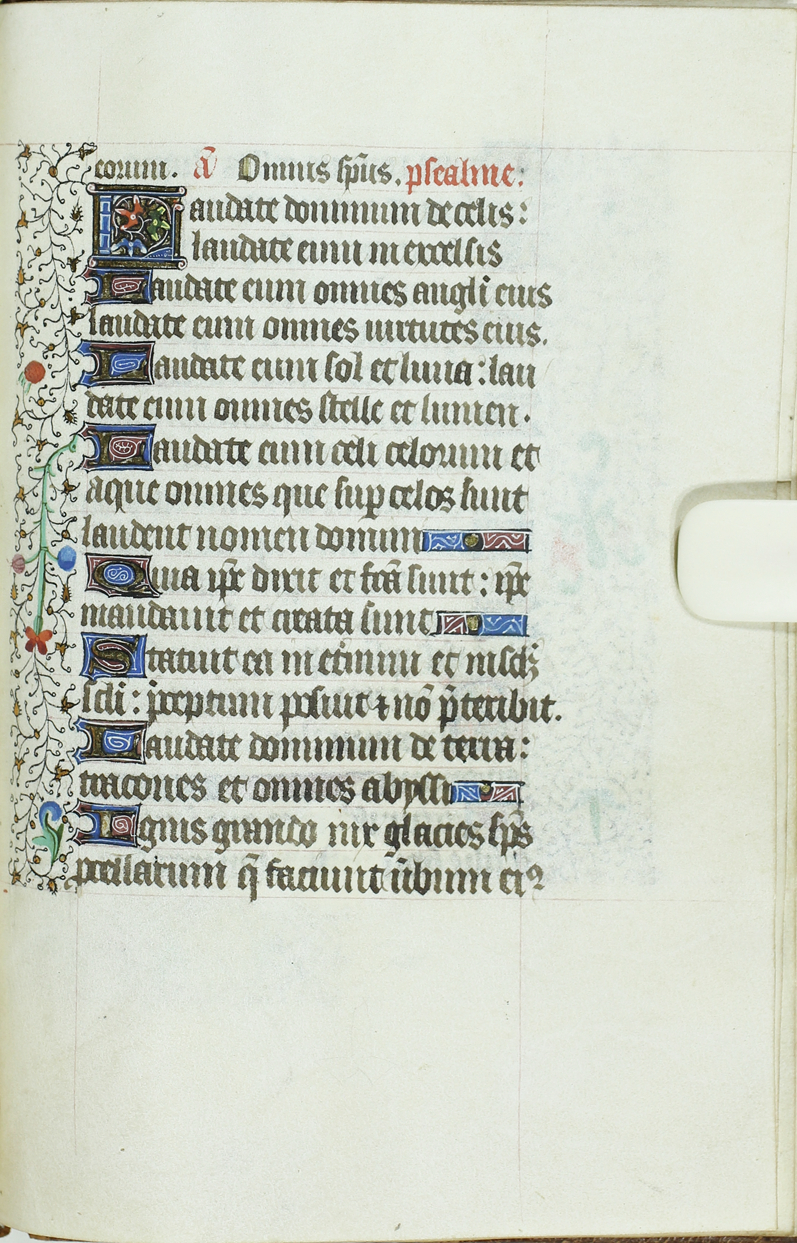 eorum. a̅ Omnis sp̅us. psealme:
Laudate dominum de celis:
laudate eum in excelsis
Laudate eum omnes angli̅ eius
laudate eum omnes uirtutes eius.
Laudate eum sol et luna: lau
date eum omnes stelle et lumen.
Laudate eum celi celorum et
aque omnes que sup̲ celos sunt
laudent nomen domini
Quia ip̅e dixit et fc̅a sunt: ip̅e
mandauit et creata sunt
Statuit ea in et̅num et in sc̅lꝫ
sc̅li: p̅ceptum posuit ⁊ no̅ p̅teribit.
Laudate dominum de terra:
tracones et omnes abyssi
Ignis grando nix glacies sp̅s
procellarum q̅ faciunt u̅bum eiꝰ